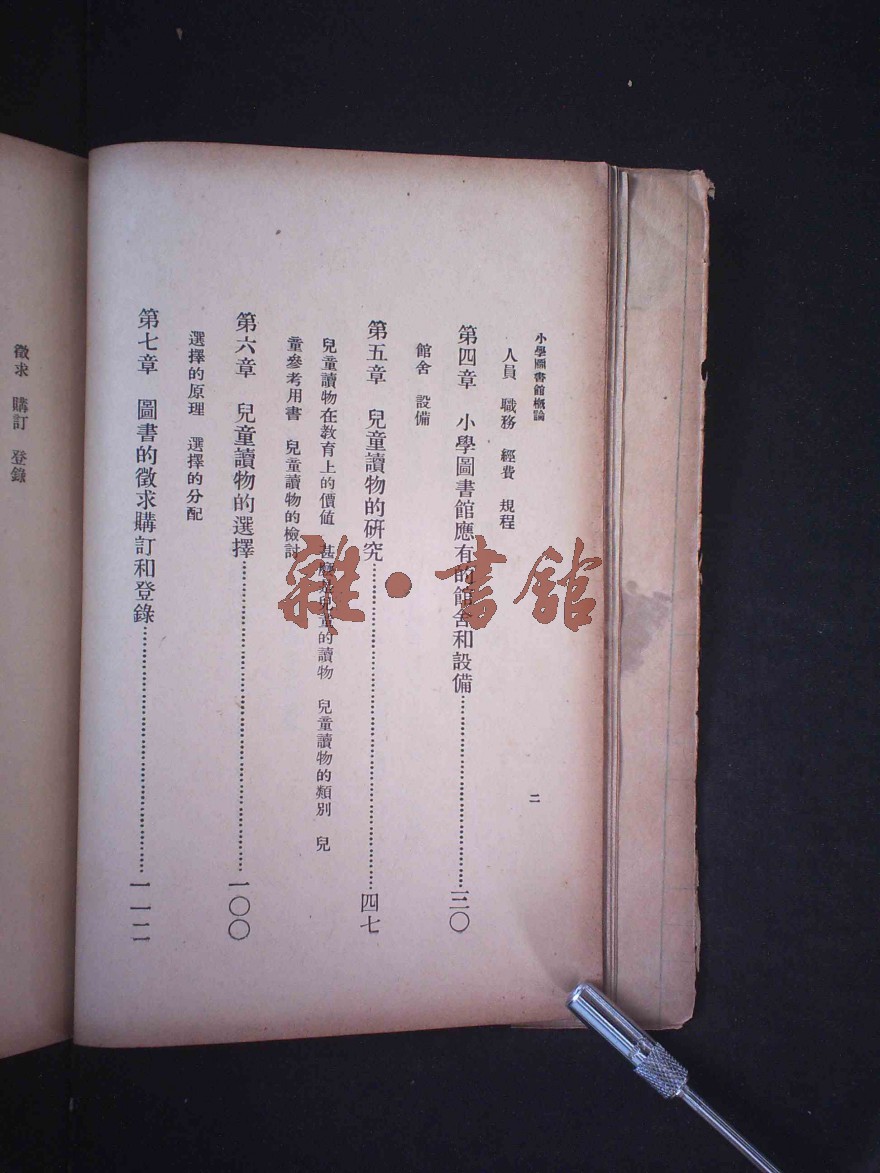 小學圖書館概論
二
人員　職務　經費　規程
第四章　小學圖書館應有的館舍和設備…………三〇
館舍　設備
第五章　兒童讀物的研究…………四七
兒童讀物在教育上的價値　甚麼是兒童的讀物　兒童讀物的類別　兒
童參考用書　兒童讀物的檢討
第六章　兒童讀物的選擇…………一〇〇
選擇的原理　選擇的分配
第七章　圖書的徵求購訂和登錄…………一一二
徵求　購訂　登錄
雜·書館